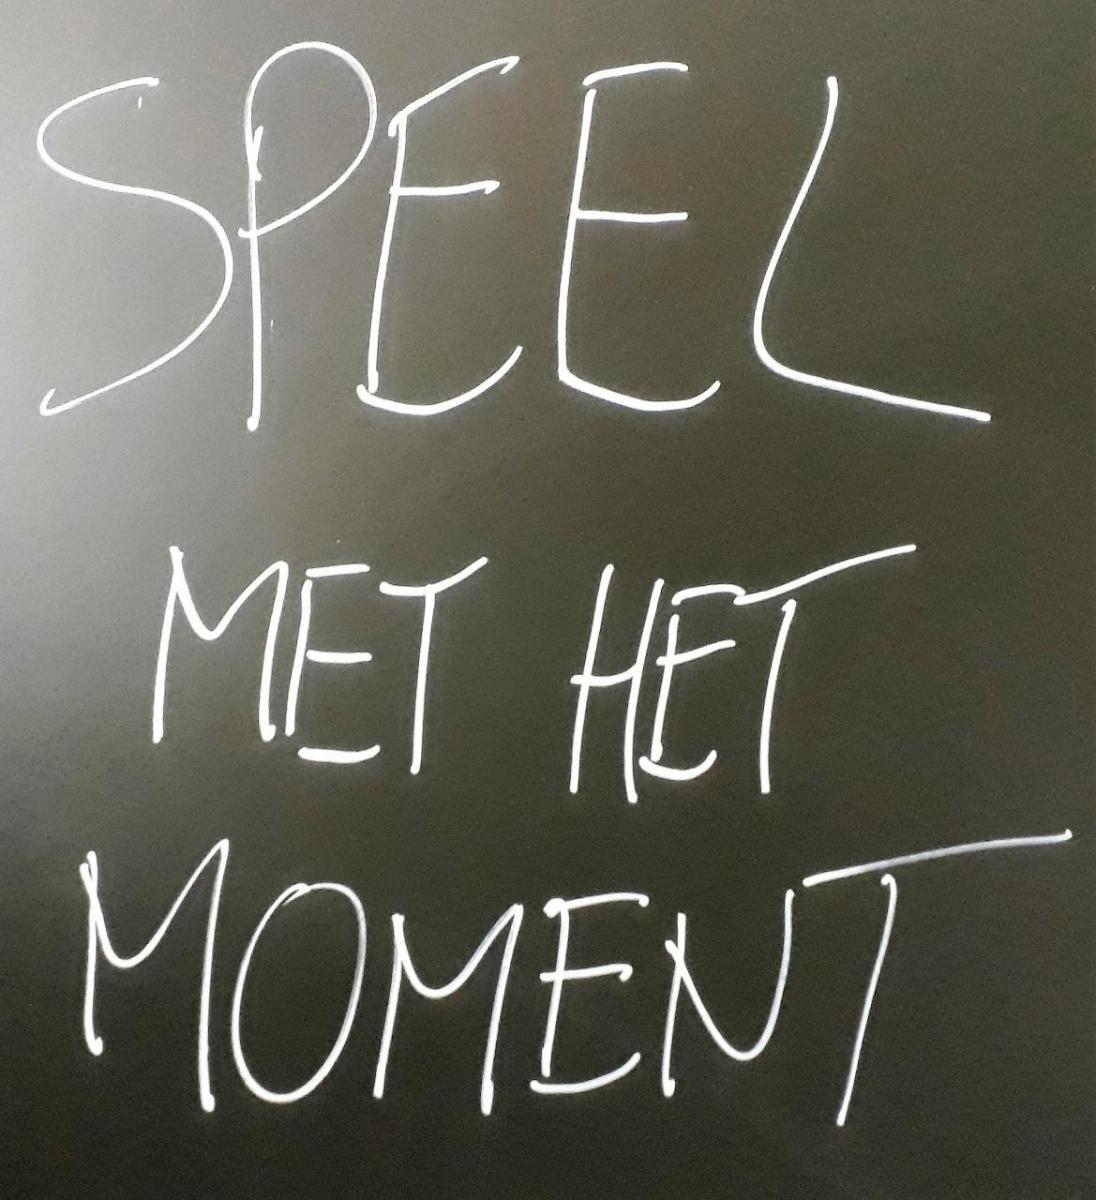 SPEEL
MET HET
MOMENT